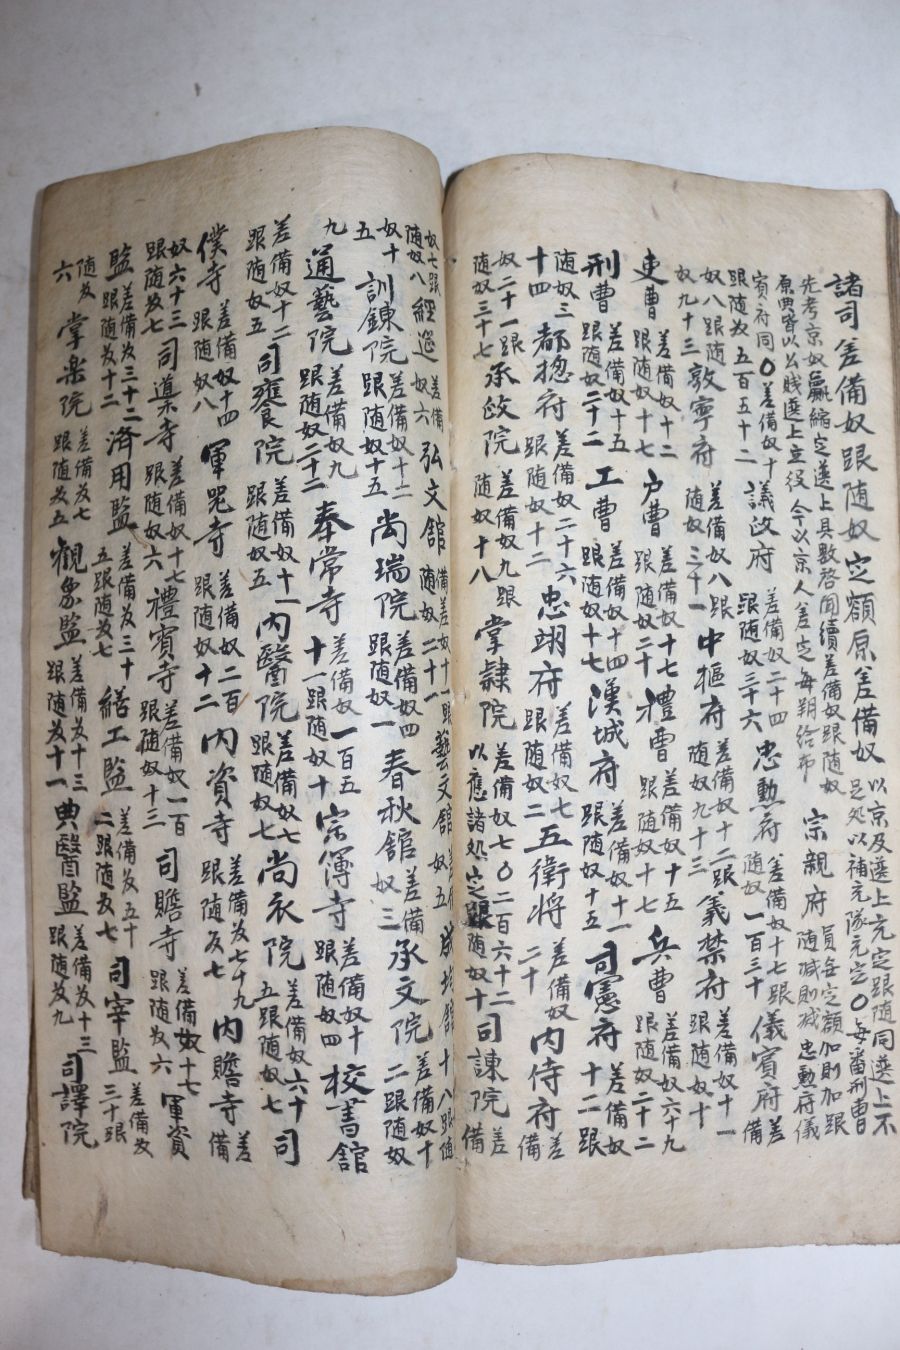 諸司差備奴跟随奴定額原差備奴以京及選上充定跟随同選上不
足処以補充隊充定〇每番刑曹
先考京奴贏縮定選上具数啓聞續差備奴跟随奴
原典皆以公賤選上立役今以京人差定每朔给布宗親府員各定額加則加跟
随减則减忠勲府儀
賓府同〇差備奴十議政府差備奴二十四
跟随奴五百五十二跟随奴三十六忠勲府差備奴十七跟
随奴一百三十儀賓府差備
奴八跟随
奴九十三敦寧府差備奴八跟
随奴三十一中樞府差備奴十二跟
随奴九十三義禁府差備奴十一
跟随奴十
吏曹差備奴十二
跟随奴十七户曹差備奴十七
跟随奴二十禮曹差備奴十五
跟随奴十七兵曹差備奴六十九
跟随奴二十二
刑曹差備奴十五
跟随奴二十二工曹差備奴十四
跟随奴十七漢城府差備奴十一
跟随奴十五司憲府差備奴
十二跟
随奴三
十四都揔府差備奴二十六
跟随奴十二忠翊府差備奴七
跟随奴二五衛将差備奴
二十内侍府差
備
奴二十一跟
随奴三十七承政院差備奴九跟
随奴十八掌隷院差備奴七〇二百六十二
以應諸処定跟随奴十司諫院差
備
奴七跟
随奴八經筵差備
奴六弘文館差備奴十一跟
随奴二十一藝文館差備
奴五成均館差備奴
十八跟随
奴十
五訓鍊院差備奴十二
跟随奴十五尚瑞院差備奴四
跟随奴一春秋館差備
奴三承文院差備奴十
二跟随奴
九通藝院差備奴九
跟随奴二十二奉常寺差備奴一百五
十一跟随奴十宗簿寺差備奴十
跟随奴四校書館
差備奴十二
跟随奴五司饔院差備奴十一
跟随奴五内醫院差備奴七
跟随奴七尚衣院差備奴六十
五跟随奴七司
僕寺差備奴十四
跟随奴八軍器寺差備奴二百
跟随奴十二内資寺差備奴七十九
跟随奴七内贍寺差
備
奴六十三
跟随奴七司䆃寺差備奴十七
跟随奴六禮賓寺差備奴一百
跟随奴十三司贍寺差備奴十七
跟随奴六軍資
監差備奴三十二
跟随奴十二済用監差備奴三十
五跟随奴七繕工監差備奴五十
二跟随奴七司宰監差備奴
三十跟
随奴
六掌楽院差備奴七
跟随奴五觀象監差備奴十三
跟随奴十一典醫監差備奴十三
跟随奴九司譯院